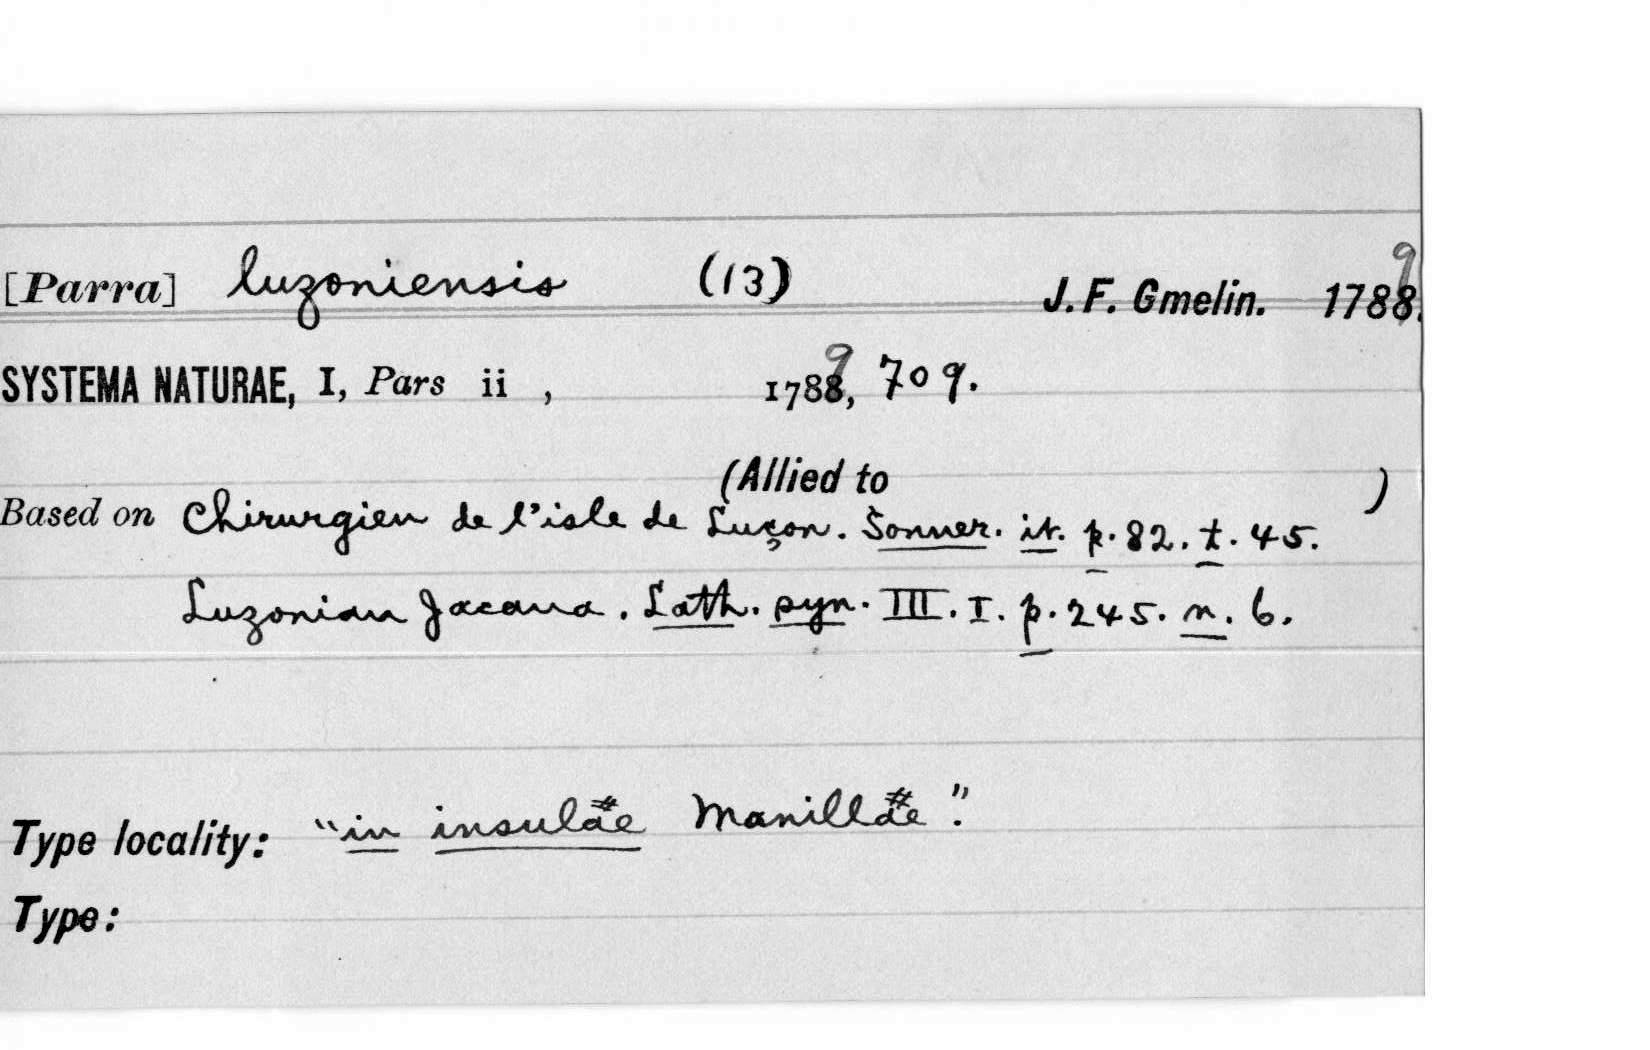 [Parra] luzoniensis (13) J. F. Gmelin. 1789.
SYSTEMA NATURAE, I, Pars ii , 1789, 709.
(Allied to )
Based on Chirurgien de l'isle de Luçon. Sonner. it. p. 82. t. 45.
Luzonian Jacana. Lath. syn. III. I. p. 245. n. 6.
Type locality: "in insulae Manillae".
Type: